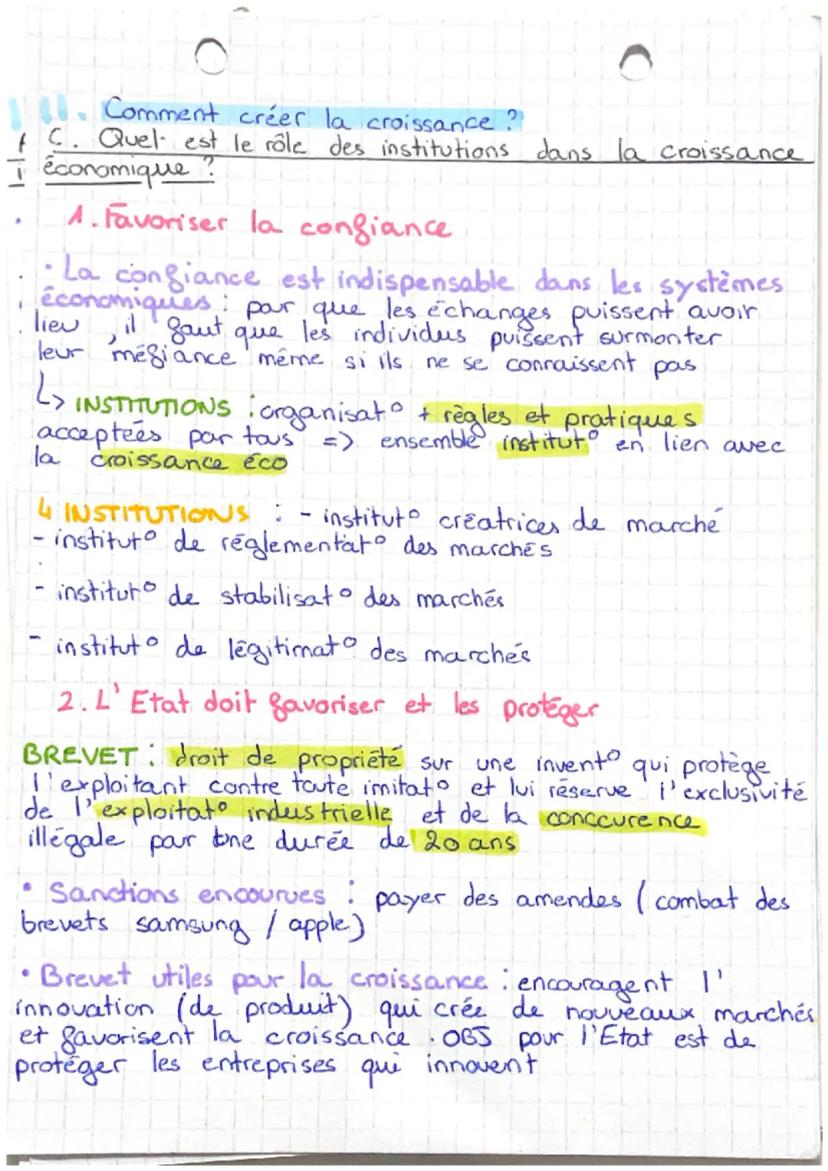 II. Comment créer la croissance ?
C. Quel est le rôle des institutions dans la croissance
économique ?
1. Favoriser la confiance
• La confiance est indispensable dans les systèmes
économiques : pour que les échanges puissent avoir
lieu, il faut que les individus puissent surmonter
leur méfiance même si ils ne se connaissent pas
↳ INSTITUTIONS : organisat° + règles et pratiques
acceptées par tous => ensemble institut° en lien avec
la croissance éco
4 INSTITUTIONS : - institut° créatrices de marché
- institut° de réglementat° des marchés
- institut° de stabilisat° des marchés
- institut° de légitimat° des marchés
2. L'Etat doit favoriser et les protéger
BREVET : droit de propriété sur une invent° qui protège
l'exploitant contre toute imitat° et lui réserve l'exclusivité
de l'exploitat° industrielle et de la conccurence
illégale pour une durée de 20 ans
• Sanctions encourues : payer des amendes (combat des
brevets samsung / apple)
• Brevet utiles pour la croissance : encouragent l'
innovation (de produit) qui crée de nouveaux marchés
et favorisent la croissance. OBJ pour l'Etat est de
protéger les entreprises qui innovent